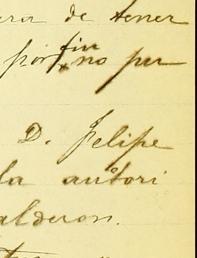 de tener
por fin no pu
D. Felipe
la autori
alderon.